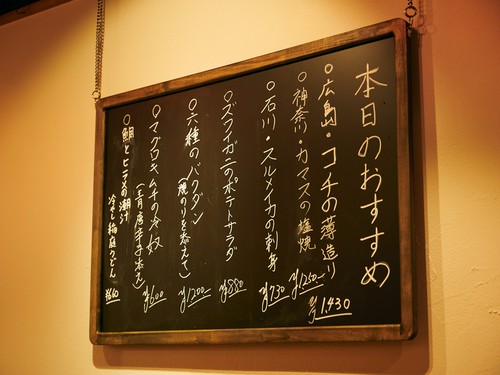 本日のおすすめ
○広島・コチの薄造り ¥1,430
○神奈川・カマスの塩焼 ¥1250
○石川・スルメイカの刺身 ¥730
○ズワイガニのポテトサラダ ¥880
○六種のバクダン
(焼のりを添えて) ¥1200
○マグロキムチの冷奴
(青唐辛子添え) ¥600
○鯛とヒラメの潮汁
冷やし稲庭うどん ¥660